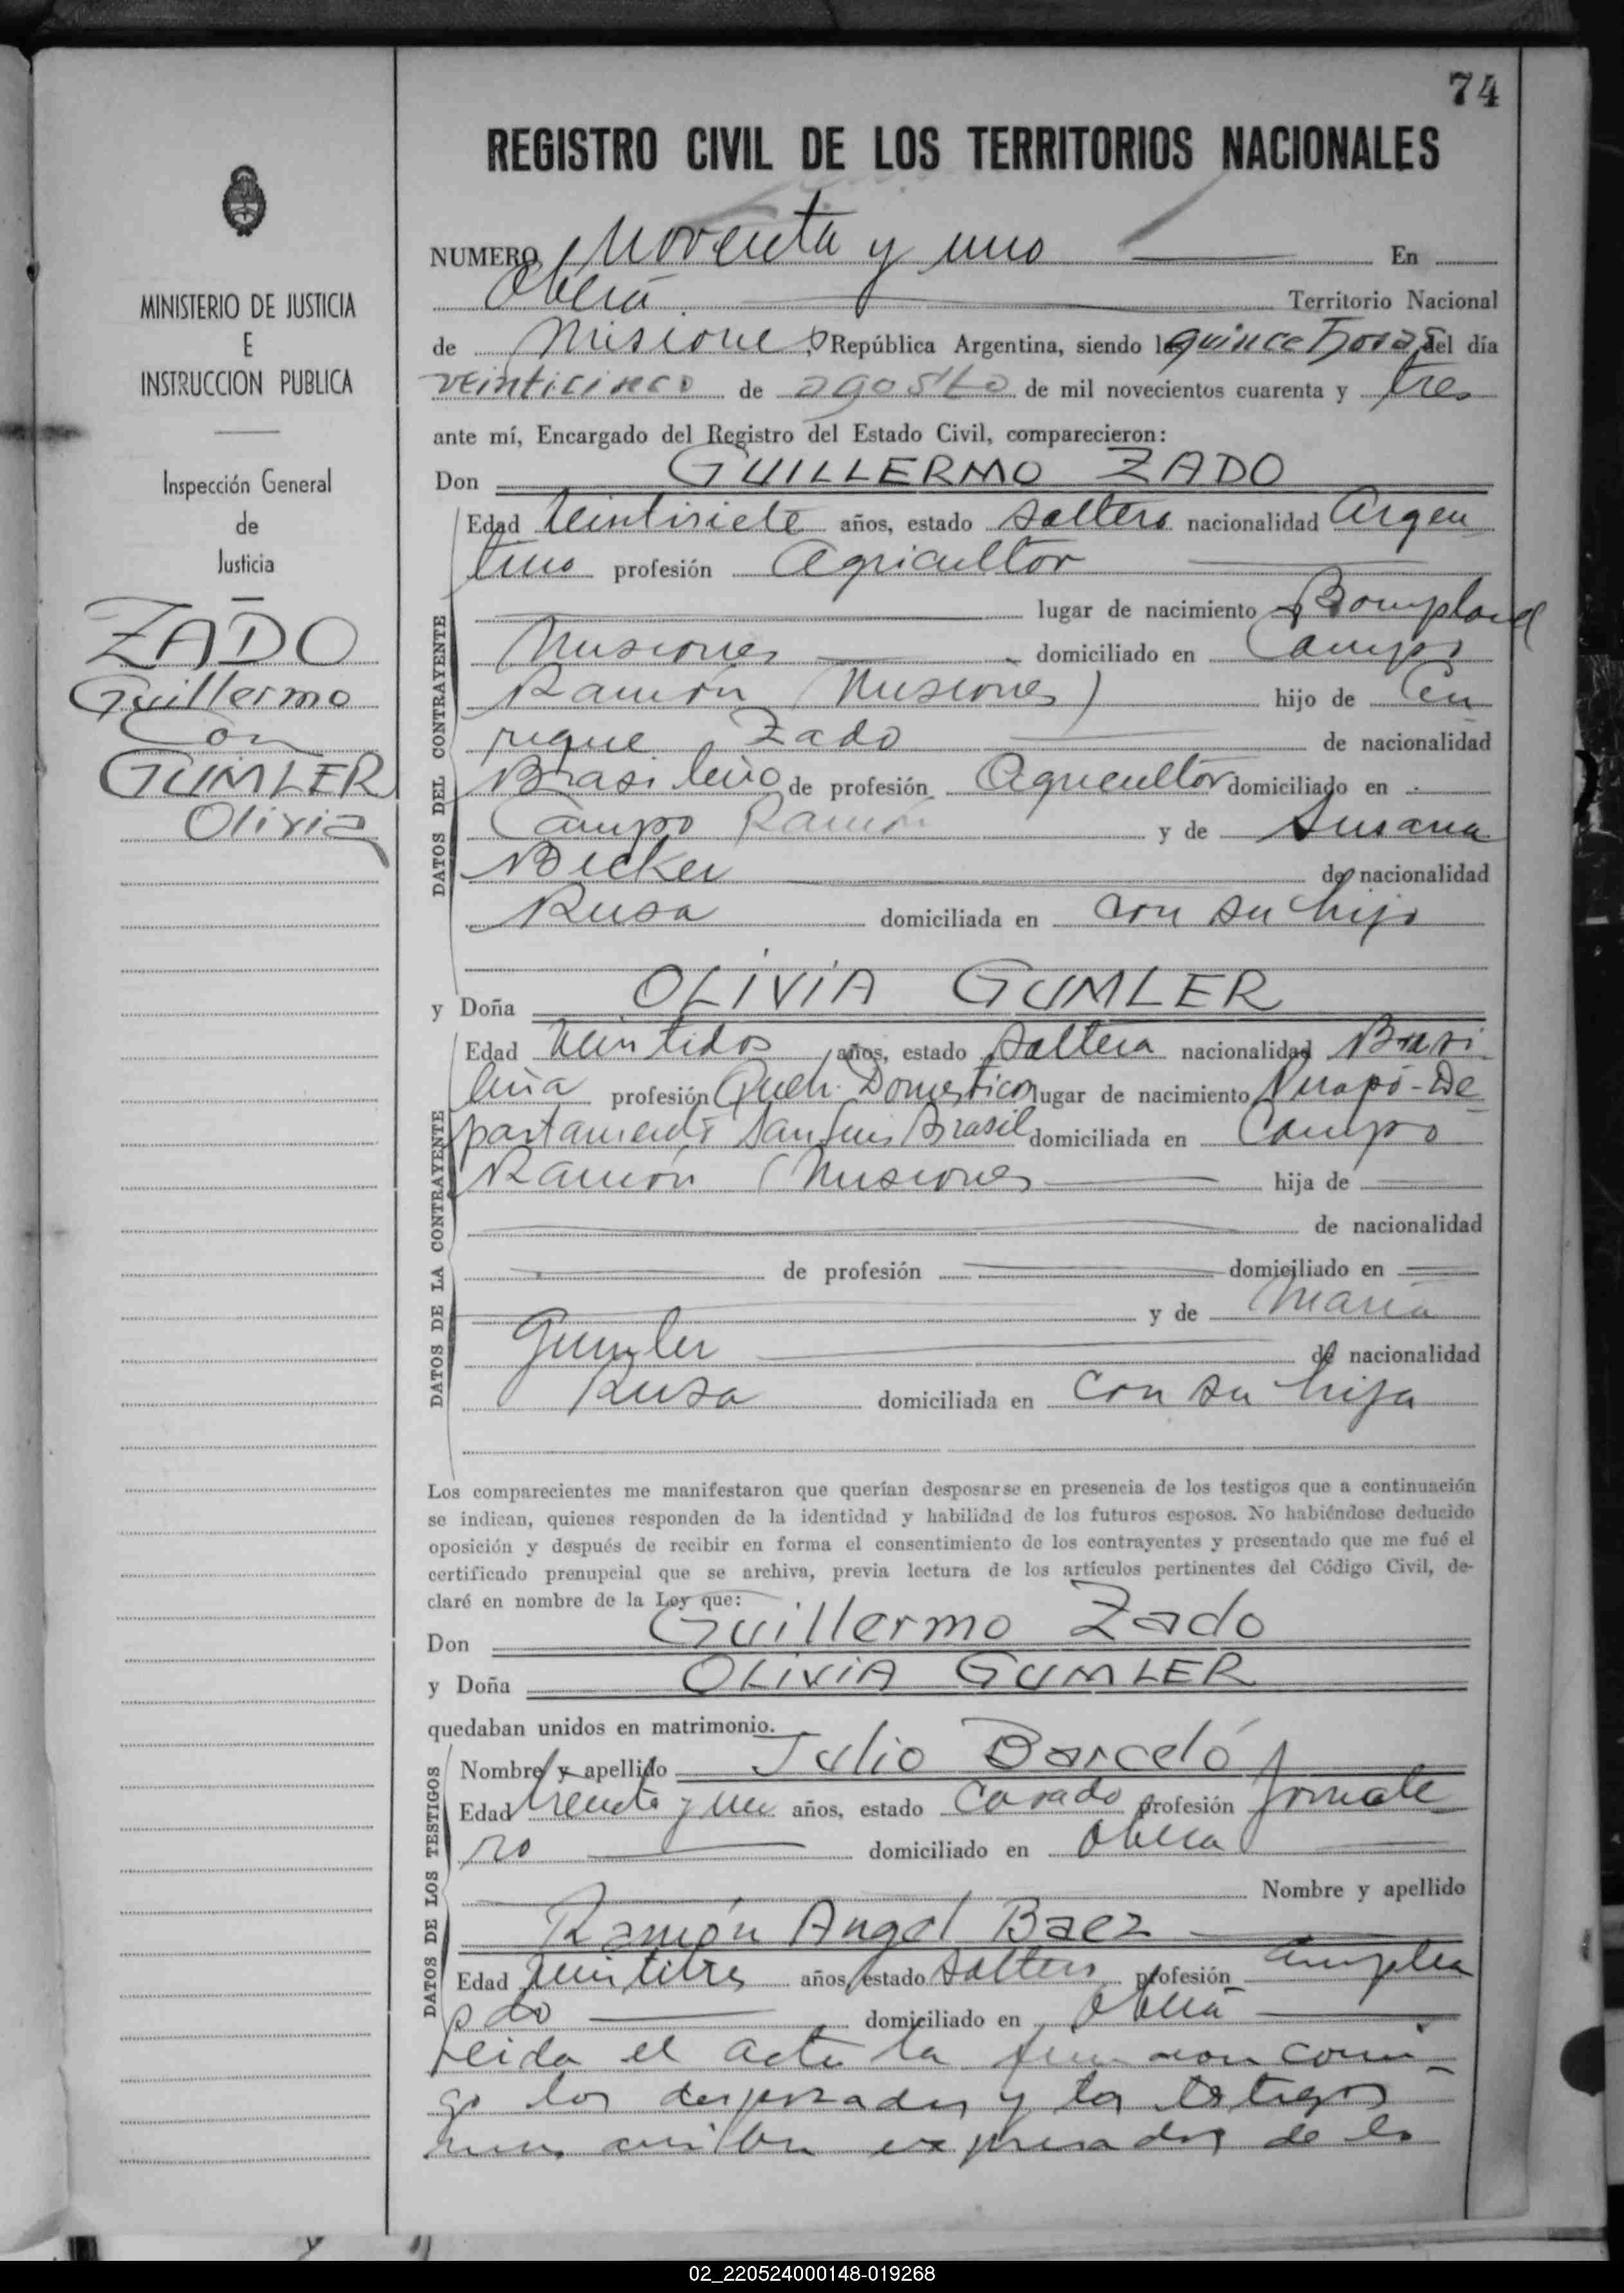 74
REGISTRO CIVIL DE LOS TERRITORIOS NACIONALES
NUMERO Noventa y uno En
Oberá Territorio Nacional
de Misiones, República Argentina, siendo las quince horas del día
veinticinco de agosto de mil novecientos cuarenta y tres
ante mí, Encargado del Registro del Estado Civil, comparecieron:
Don GUILLERMO ZADO
DATOS DEL CONTRAYENTE
Edad veintisiete años, estado soltero nacionalidad Argen
tino profesión Agricultor
lugar de nacimiento Bompland
Misiones domiciliado en Campo
Ramón (Misiones) hijo de En
rique Zado de nacionalidad
Brasileño de profesión Agricultor domiciliado en
Campo Ramón y de Susana
Becker de nacionalidad
Rusa domiciliada en con su hijo
y Doña OLIVIA GUMLER
DATOS DE LA CONTRAYENTE
Edad veintidos años, estado soltera nacionalidad Brasi
leña profesión Queh. Domesticos lugar de nacimiento
partamento San Luis Brasil domiciliada en Campo
Ramón (Misiones hija de
de nacionalidad
de profesión domiciliado en
y de María
Gumler de nacionalidad
Rusa domiciliada en con su hija
Los comparecientes me manifestaron que querían desposarse en presencia de los testigos que a continuación
se indican, quienes responden de la identidad y habilidad de los futuros esposos. No habiéndose deducido
oposición y después de recibir en forma el consentimiento de los contrayentes y presentado que me fué el
certificado prenupcial que se archiva, previa lectura de los artículos pertinentes del Código Civil, de-
claré en nombre de la Ley que:
Don Guillermo Zado
y Doña OLIVIA GUMLER
quedaban unidos en matrimonio.
DATOS DE LOS TESTIGOS
Nombre y apellido Julio Barceló
Edad treinta y un años, estado Casado profesión Jornale
ro domiciliado en Oberá
Nombre y apellido
Ramón Angel Baez
Edad veintitres años, estado soltero profesión Emplea
do domiciliado en Oberá
Leida el acta la firmaron conmi-
go los desposados y los testigos
expresados de lo
MINISTERIO DE JUSTICIA
E
INSTRUCCION PUBLICA
Inspección General
de
Justicia
ZADO
Guillermo
Con
GUMLER
Olivia
02_220524000148-019268